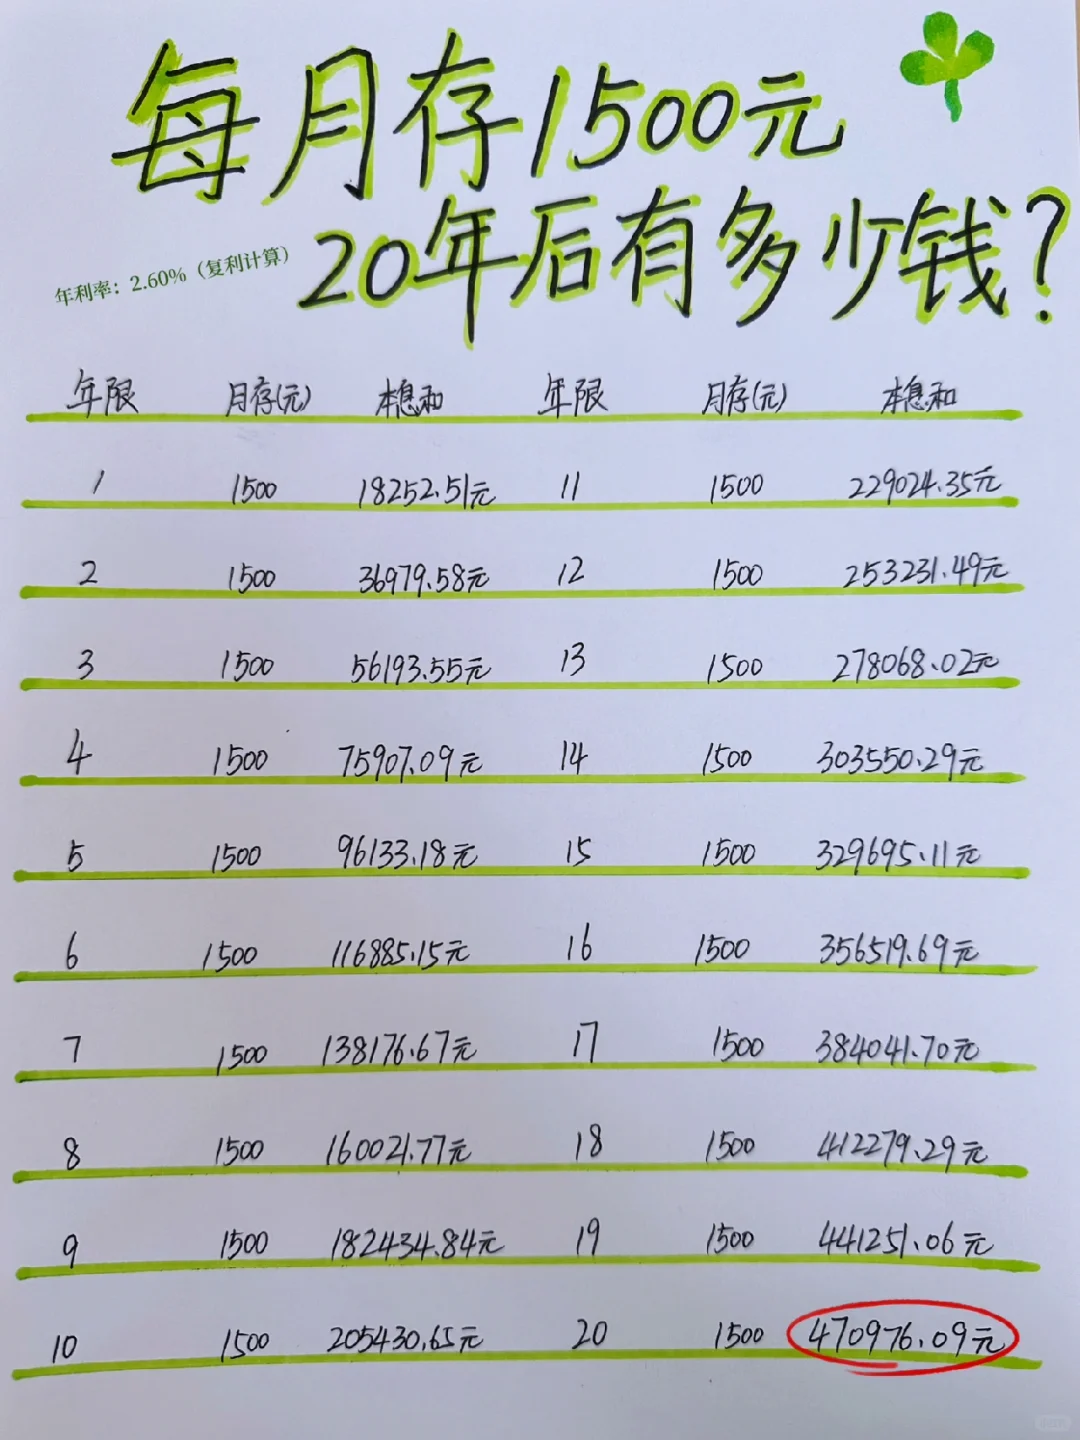 每月存1500元
20年后有多少钱?
年利率：2.60%（复利计算）
年限 月存(元) 本息和 年限 月存(元) 本息和
1 1500 18252.51元 11 1500 229024.35元
2 1500 36979.58元 12 1500 253231.49元
3 1500 56193.55元 13 1500 278068.02元
4 1500 75907.09元 14 1500 303550.29元
5 1500 96133.18元 15 1500 329695.11元
6 1500 116885.15元 16 1500 356519.69元
7 1500 138176.67元 17 1500 384041.70元
8 1500 160021.77元 18 1500 412279.29元
9 1500 182434.84元 19 1500 441251.06元
10 1500 205430.65元 20 1500 470976.09元